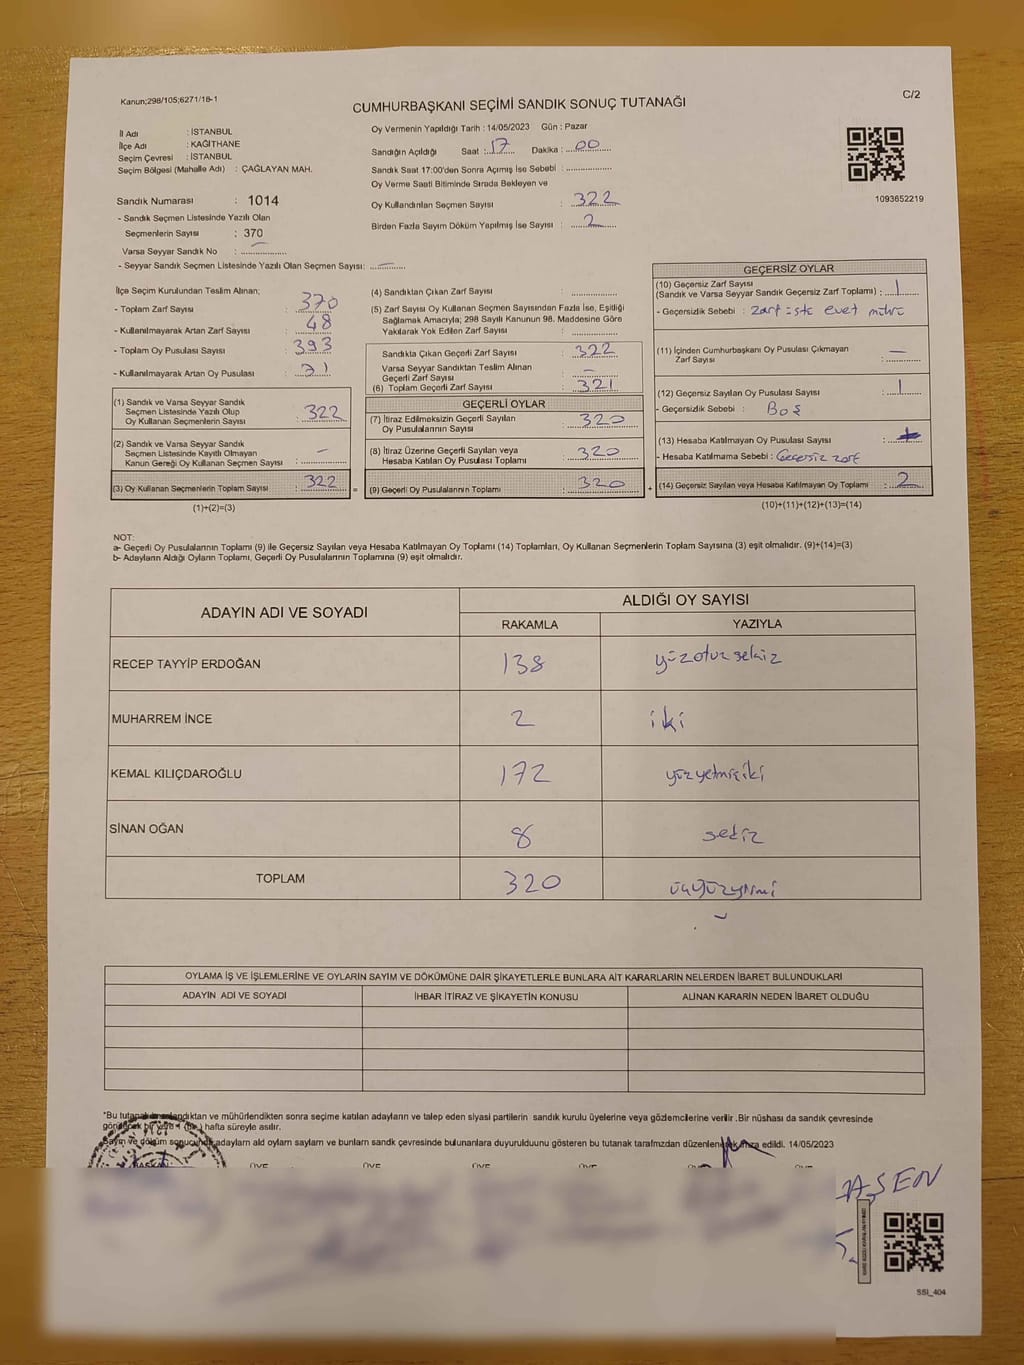 Kanun;298/105;6271/18-1
CUMHURBAŞKANI SEÇİMİ SANDIK SONUÇ TUTANAĞI
C/2
İl Adı : İSTANBUL
İlçe Adı : KAĞITHANE
Seçim Çevresi : İSTANBUL
Seçim Bölgesi (Mahalle Adı) : ÇAĞLAYAN MAH.
Oy Vermenin Yapıldığı Tarih : 14/05/2023 Gün : Pazar
Sandığın Açıldığı Saat : 17 Dakika : 00
Sandık Saat 17:00'den Sonra Açımış İse Sebebi :
Oy Verme Saati Bitiminde Sırada Bekleyen ve
Oy Kullandırılan Seçmen Sayısı : 322
Birden Fazla Sayım Döküm Yapılmış İse Sayısı : 2
1093652219
Sandık Numarası : 1014
- Sandık Seçmen Listesinde Yazılı Olan
Seçmenlerin Sayısı : 370
Varsa Seyyar Sandık No : –
- Seyyar Sandık Seçmen Listesinde Yazılı Olan Seçmen Sayısı: –
İlçe Seçim Kurulundan Teslim Alınan;
- Toplam Zarf Sayısı : 370
- Kullanılmayarak Artan Zarf Sayısı : 48
- Toplam Oy Pusulası Sayısı : 393
- Kullanılmayarak Artan Oy Pusulası : 71
(1) Sandık ve Varsa Seyyar Sandık
Seçmen Listesinde Yazılı Olup
Oy Kullanan Seçmenlerin Sayısı : 322
(2) Sandık ve Varsa Seyyar Sandık
Seçmen Listesinde Kayıtlı Olmayan
Kanun Gereği Oy Kullanan Seçmen Sayısı : –
(3) Oy Kullanan Seçmenlerin Toplam Sayısı : 322
(1)+(2)=(3)
(4) Sandıktan Çıkan Zarf Sayısı :
(5) Zarf Sayısı Oy Kullanan Seçmen Sayısından Fazla İse, Eşitliği
Sağlamak Amacıyla; 298 Sayılı Kanunun 98. Maddesine Göre
Yakılarak Yok Edilen Zarf Sayısı :
Sandıkta Çıkan Geçerli Zarf Sayısı : 322
Varsa Seyyar Sandıktan Teslim Alınan
Geçerli Zarf Sayısı : –
(6) Toplam Geçerli Zarf Sayısı : 321
GEÇERLİ OYLAR
(7) İtiraz Edilmeksizin Geçerli Sayılan
Oy Pusulalarının Sayısı : 320
(8) İtiraz Üzerine Geçerli Sayılan veya
Hesaba Katılan Oy Pusulası Toplamı : 320
(9) Geçerli Oy Pusulalarının Toplamı : 320
GEÇERSİZ OYLAR
(10) Geçersiz Zarf Sayısı
(Sandık ve Varsa Seyyar Sandık Geçersiz Zarf Toplamı) : 1
- Geçersizlik Sebebi : Zarf üstü evet mührü
(11) İçinden Cumhurbaşkanı Oy Pusulası Çıkmayan
Zarf Sayısı : –
(12) Geçersiz Sayılan Oy Pusulası Sayısı : 1
- Geçersizlik Sebebi : Boş
(13) Hesaba Katılmayan Oy Pusulası Sayısı :
- Hesaba Katılmama Sebebi : Geçersiz zarf
(14) Geçersiz Sayılan veya Hesaba Katılmayan Oy Toplamı : 2
(10)+(11)+(12)+(13)=(14)
NOT:
a- Geçerli Oy Pusulalarının Toplamı (9) ile Geçersiz Sayılan veya Hesaba Katılmayan Oy Toplamı (14) Toplamları, Oy Kullanan Seçmenlerin Toplam Sayısına (3) eşit olmalıdır. (9)+(14)=(3)
b- Adayların Aldığı Oyların Toplamı, Geçerli Oy Pusulalarının Toplamına (9) eşit olmalıdır.
ADAYIN ADI VE SOYADI
ALDIĞI OY SAYISI
RAKAMLA YAZIYLA
RECEP TAYYİP ERDOĞAN 138 yüzotuzsekiz
MUHARREM İNCE 2 iki
KEMAL KILIÇDAROĞLU 172 yüzyetmişiki
SİNAN OĞAN 8 sekiz
TOPLAM 320 üçyüzyirmi
OYLAMA İŞ VE İŞLEMLERİNE VE OYLARIN SAYIM VE DÖKÜMÜNE DAİR ŞİKAYETLERLE BUNLARA AİT KARARLARIN NELERDEN İBARET BULUNDUKLARI
ADAYIN ADI VE SOYADI İHBAR İTİRAZ VE ŞİKAYETİN KONUSU ALINAN KARARIN NEDEN İBARET OLDUĞU
*Bu tutanak imzalandıktan ve mühürlendikten sonra seçime katılan adayların ve talep eden siyasi partilerin sandık kurulu üyelerine veya gözlemcilerine verilir .Bir nüshası da sandık çevresinde
görülecek bir yere 1 (Bir) hafta süreyle asılır.
Sayım ve döküm sonucunda adayların ald oyların sayların ve bunların sandık çevresinde bulunanlara duyurulduunu gösteren bu tutanak tarafmzdan düzenlenerek imza edildi. 14/05/2023
BAŞKAN ÜYE ÜYE ÜYE ÜYE ÜYE
AŞEN
SSI_404